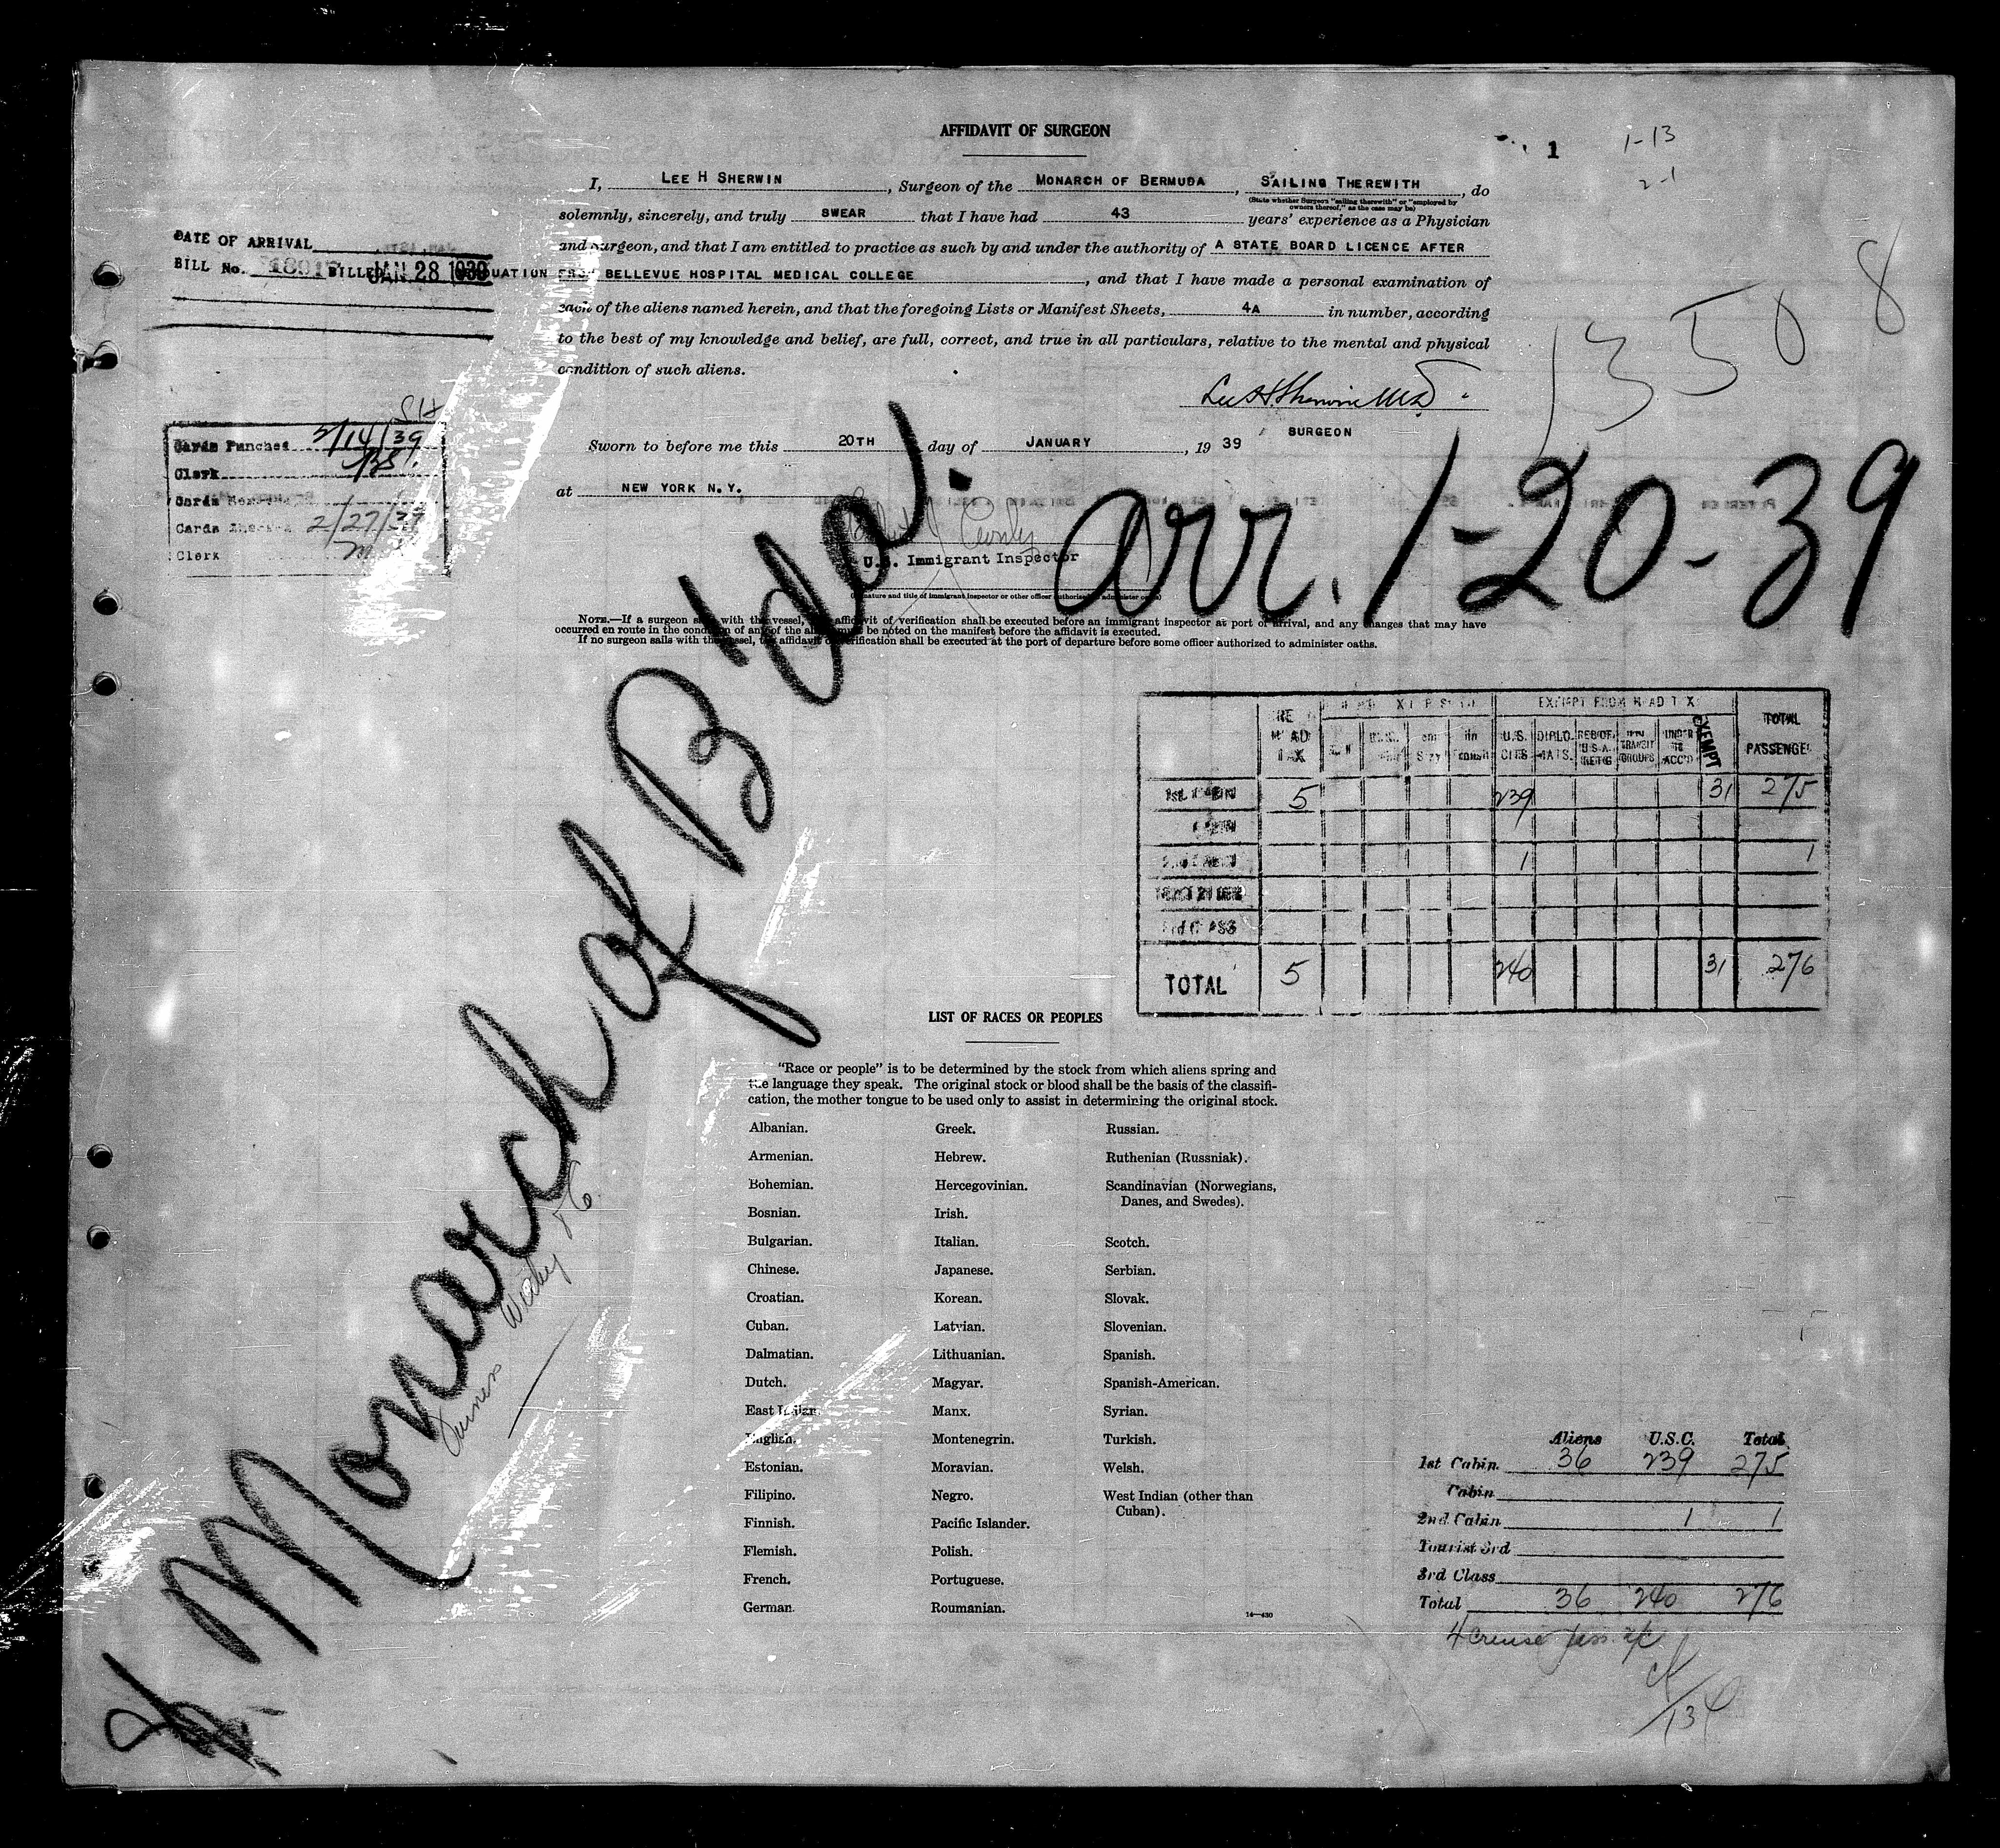 AFFIDAVIT OF SURGEON
1
1-13
2-1
I, LEE H SHERWIN, Surgeon of the MONARCH OF BERMUDA, SAILING THEREWITH, do
(State whether Surgeon "sailing therewith" or "employed by
owners thereof," as the case may be)
solemnly, sincerely, and truly SWEAR that I have had 43 years' experience as a Physician
and surgeon, and that I am entitled to practice as such by and under the authority of A STATE BOARD LICENCE AFTER
UATION FROM BELLEVUE HOSPITAL MEDICAL COLLEGE, and that I have made a personal examination of
each of the aliens named herein, and that the foregoing Lists or Manifest Sheets, 4A in number, according
to the best of my knowledge and belief, are full, correct, and true in all particulars, relative to the mental and physical
condition of such aliens.
DATE OF ARRIVAL
BILL No. BILLED JAN 28 1939
13508
Lee H Sherwin M.D.
SURGEON
Sworn to before me this 20TH day of JANUARY, 19 39
at NEW YORK N.Y.
Cards Punched 2/14/39
Clerk
Cards
Cards Checked 2/27/39
Clerk
U.S. Immigrant Inspector
(Signature and title of immigrant inspector or other officer authorized to administer oaths)
NOTE.—If a surgeon sails with the vessel, the affidavit of verification shall be executed before an immigrant inspector at port of arrival, and any changes that may have
occurred en route in the condition of any of the aliens must be noted on the manifest before the affidavit is executed.
If no surgeon sails with the vessel, the affidavit of verification shall be executed at the port of departure before some officer authorized to administer oaths.
Monarch of B'da. arr. 1-20-39
Furness Withy
HEAD TAX
EXEMPT FROM HEAD TAX
TOTAL PASSENGE
U.S. CITS
DIPLO-MATS.
RES OF U.S.A. RET'G
IN TRANSIT GROUPS
UNDER 16 ACC'D
EXEMPT
1st CABIN 5 239 31 275
CABIN
2nd CABIN 1 1
3rd CLASS
TOTAL 5 240 31 276
LIST OF RACES OR PEOPLES
"Race or people" is to be determined by the stock from which aliens spring and
the language they speak. The original stock or blood shall be the basis of the classifi-
cation, the mother tongue to be used only to assist in determining the original stock.
Albanian.
Armenian.
Bohemian.
Bosnian.
Bulgarian.
Chinese.
Croatian.
Cuban.
Dalmatian.
Dutch.
East Indian.
English.
Estonian.
Filipino.
Finnish.
Flemish.
French.
German.
Greek.
Hebrew.
Hercegovinian.
Irish.
Italian.
Japanese.
Korean.
Latvian.
Lithuanian.
Magyar.
Manx.
Montenegrin.
Moravian.
Negro.
Pacific Islander.
Polish.
Portuguese.
Roumanian.
Russian.
Ruthenian (Russniak).
Scandinavian (Norwegians,
Danes, and Swedes).
Scotch.
Serbian.
Slovak.
Slovenian.
Spanish.
Spanish-American.
Syrian.
Turkish.
Welsh.
West Indian (other than
Cuban).
14—430
Aliens U.S.C. Total
1st Cabin 36 239 275
Cabin
2nd Cabin 1 1
Tourist 3rd
3rd Class
Total 36 240 276
4 cruise pass.